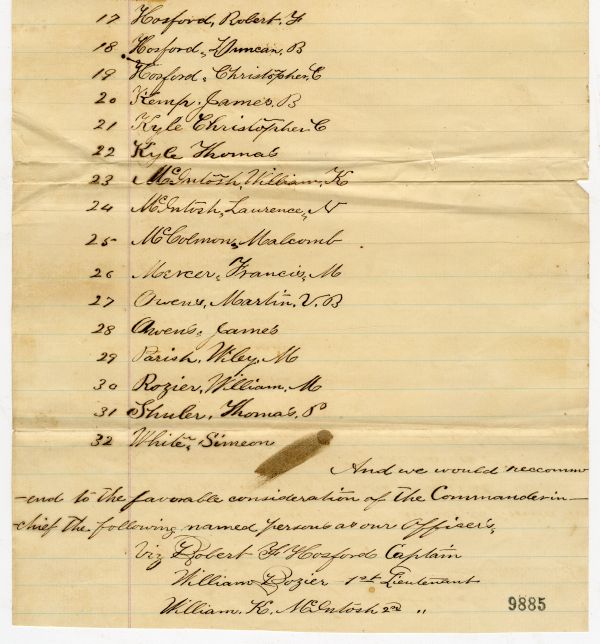 17 Hosford, Robert, F
18 Hosford, Duncan, B
19 Hosford, Christopher, C
20 Kemp, James, B
21 Kyle Christopher, C
22 Kyle Thomas
23 McIntosh, William, K
24 McIntosh, Laurence, N
25 McColmon, Malcomb
26 Mercer, Francis, M
27 Owens, Martin, V. B
28 Owens, James
29 Parish, Wiley, M
30 Rozier, William, M
31 Shuler, Thomas, P
32 White, Simeon
And we would reccomm
-end to the favorable consideration of the Commander in-
-chief the following named persons as our Officer's,
Viz Robert F Hosford Captain
William Rozier 1st Lieutenant
William, K, McIntosh 2nd "
9885